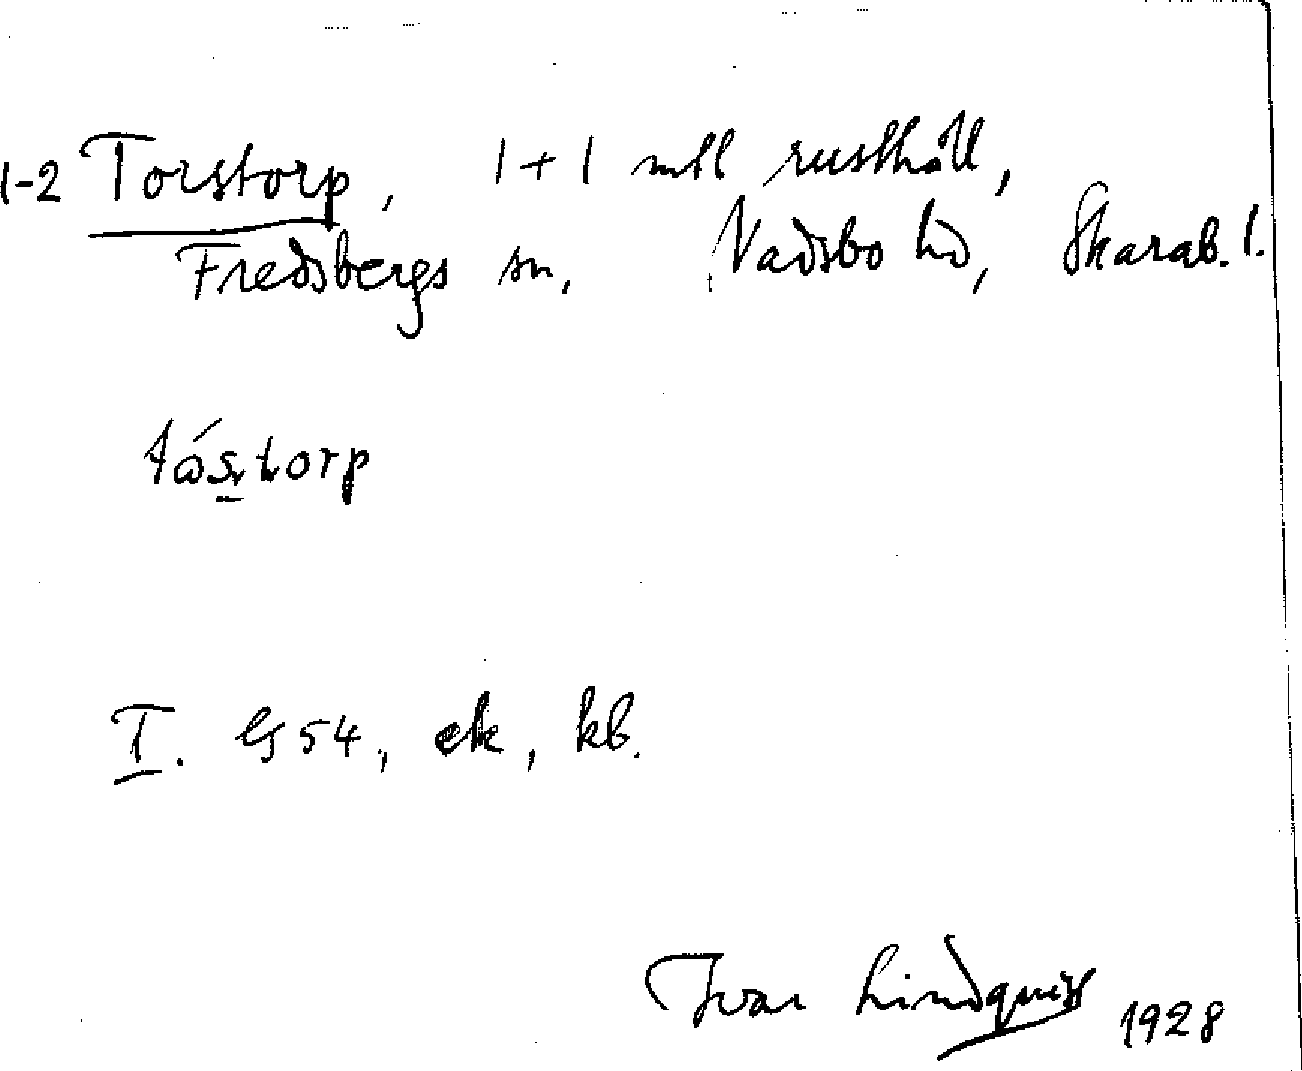 1-2 Torstorp, 1+1 mtl rusthåll,
Fredsbergs sn, Vadsbo hd, Skarab. l.
tós̲torp
I. GS4, ek, kb.
Ivar Lindquist 1928